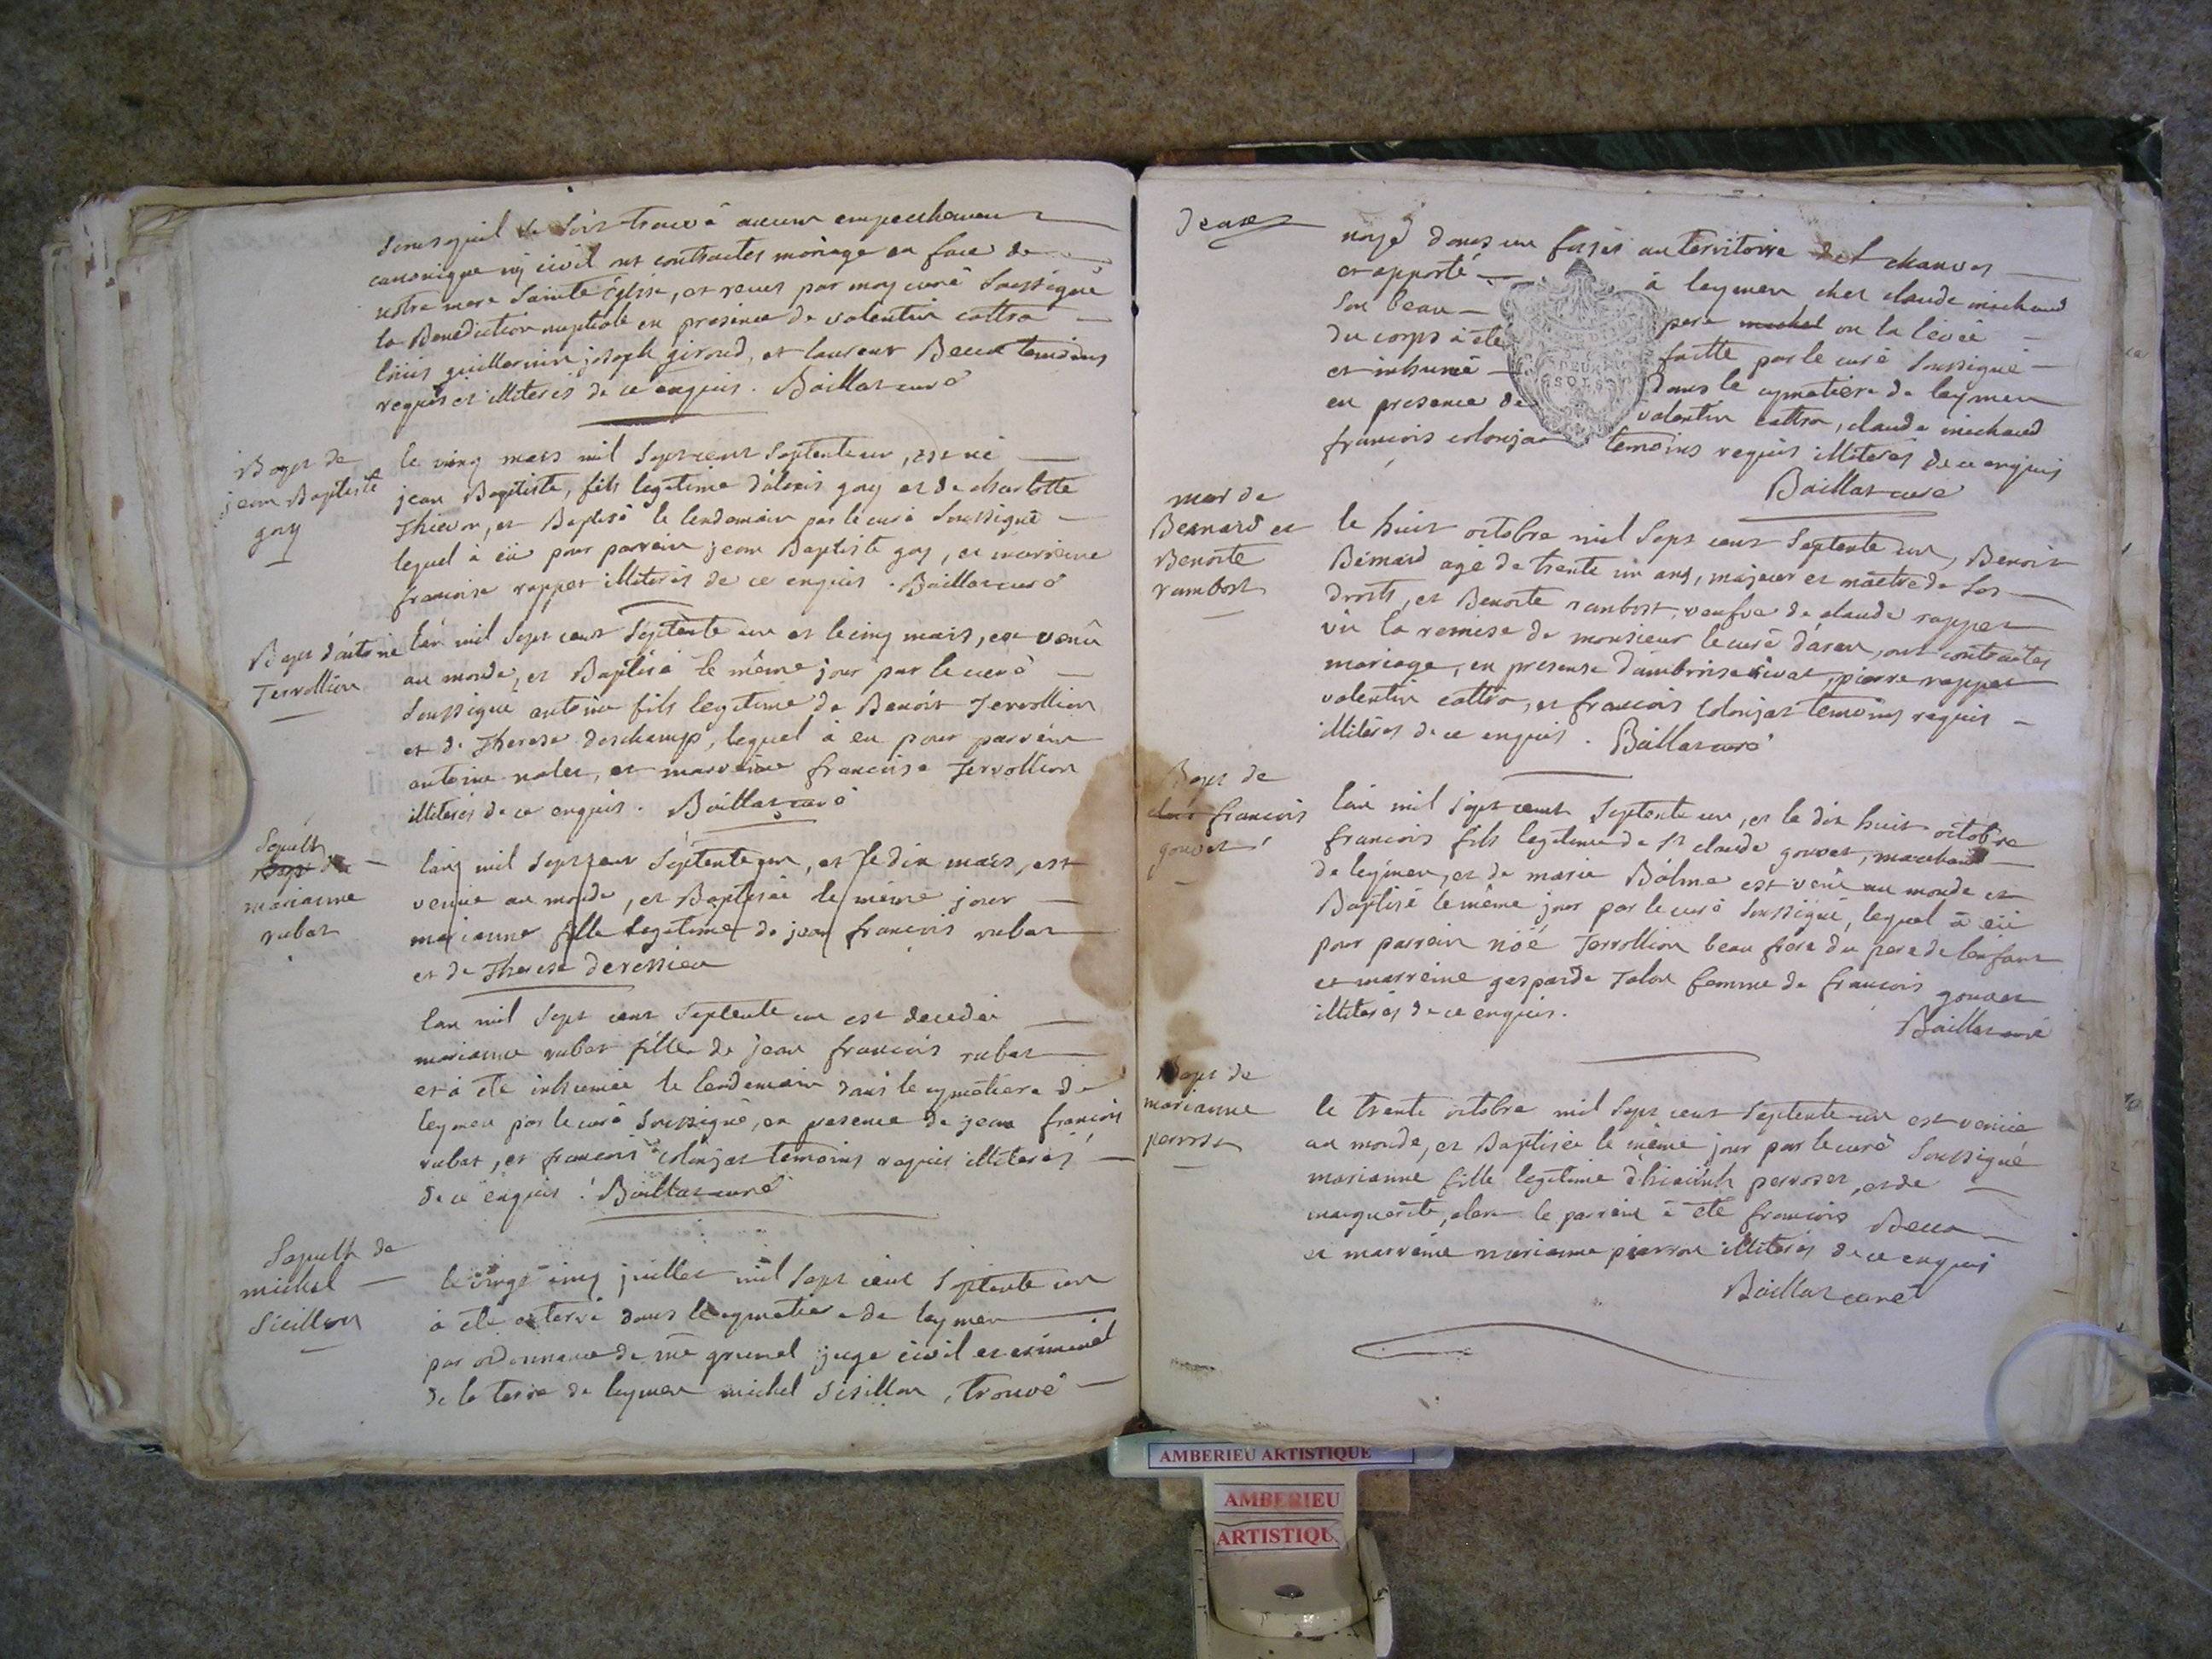 sans quil se soit trouvé aucun empechement
canonique nÿ civil ont contractes mariage en face de
nostre mere Sainte église, et recus par moy curé Soussigné
la Benediction nuptiale en presence de valentin cattra
loüis guillermin joseph giroud, et laurent Beccat temoins
requis et illiteres de ce enquis. Baillat curé
Bapt de
jean Baptiste
gay
le cinq mars mil sept cent septente un, est né
jean Baptiste, fils legitime d'alexis gay et de charlotte
et Baptisé le lendemain par le curé Soussigné
lequel à eü pour parrein jean Baptiste gay, et marreine
francoise rappet illiterés de ce enquis. Baillat curé
Bapt d'antoine
Tervollion
lan mil sept cent septente un et le cinq mars, est venû
au monde, et Baptisé le même jour par le curé
Soussigné antoine fils legitime de Benoit Tervollion
et de Therese deschamp, lequel à eu pour parrein
antoine nalet, et marreine francoise Tervollion
illiterés de ce enquis. Baillat curé
Sepult
Bapt de
marianne
rubat
lan mil sept cent septente un, et le dix mars, est
venüe au monde, et Baptisée le même jour
marianne fille legitime de jean francois rubat
et de Therese deressieu
lan mil sept cent septente un est decedée
marianne rubat fille de jean francois rubat
et à eté inhumée le lendemain dans le cymetiere de
leymen par le curé Soussigné, en presence de jean francois
rubat, et francois colonjat temoins requis illiterés
de ce enquis. Baillat curé
Sepult de
michel
Sicillon
le vingt cinq juillet mil sept cent septente un
à eté enterré dans le cymetiere de leymen
par ordonnance de me grumel juge civil et criminel
de la terre de leymen michel Sisillon, trouvé
deux
noyé dans un fossés au territoire de chanves
et apporté à leymen chez claude michaud
son beau pere michel ou la levée
du corps à eté faitte par le curé Soussigné
et inhumé dans le cymetiere de leymen
en presence de valentin cattra, claude michaud
francois colonjat temoins requis illiterés de ce enquis
Baillat curé
DEUX
SOLS
mar de
Bernard et
Benoite
rambost
le huit octobre mil sept cent septente un, Benoit
Bernard agé de trente un ans, majeur et maitre de ses
droits, et Benoite rambost, veufve de claude rappet
vü la remise de monsieur le curé d'aran, ont contractés
mariage, en presense d'ambroise rivat, pierre rappet
valentin cattra, et francois colonjat temoins requis
illitéres de ce enquis. Baillat curé
Bapt de
francois
gouvet
lan mil sept cent septente un, et le dix huit octobre
francois fils legitime de sr claude gouvet, marchand
de leymen, et de marie Balme est venû au monde et
Baptisé le même jour par le curé Soussigné, lequel à eü
pour parrein nöé Tervollion beau frere du pere de lenfant
et marreine gasparde Talon femme de francois gouvet
illiterés de ce enquis.
Baillat curé
Bapt de
marianne
perrost
le trente octobre mil sept cent septente un est venüe
au monde, et Baptisée le même jour par le curé Soussigné
marianne fille legitime d'hiacinth perroset, et de
marguerite, le parrein à eté francois Beccat
et marreine marianne pierron illiterés de ce enquis
Baillat curé
AMBERIEU ARTISTIQUE
AMBERIEU
ARTISTIQU